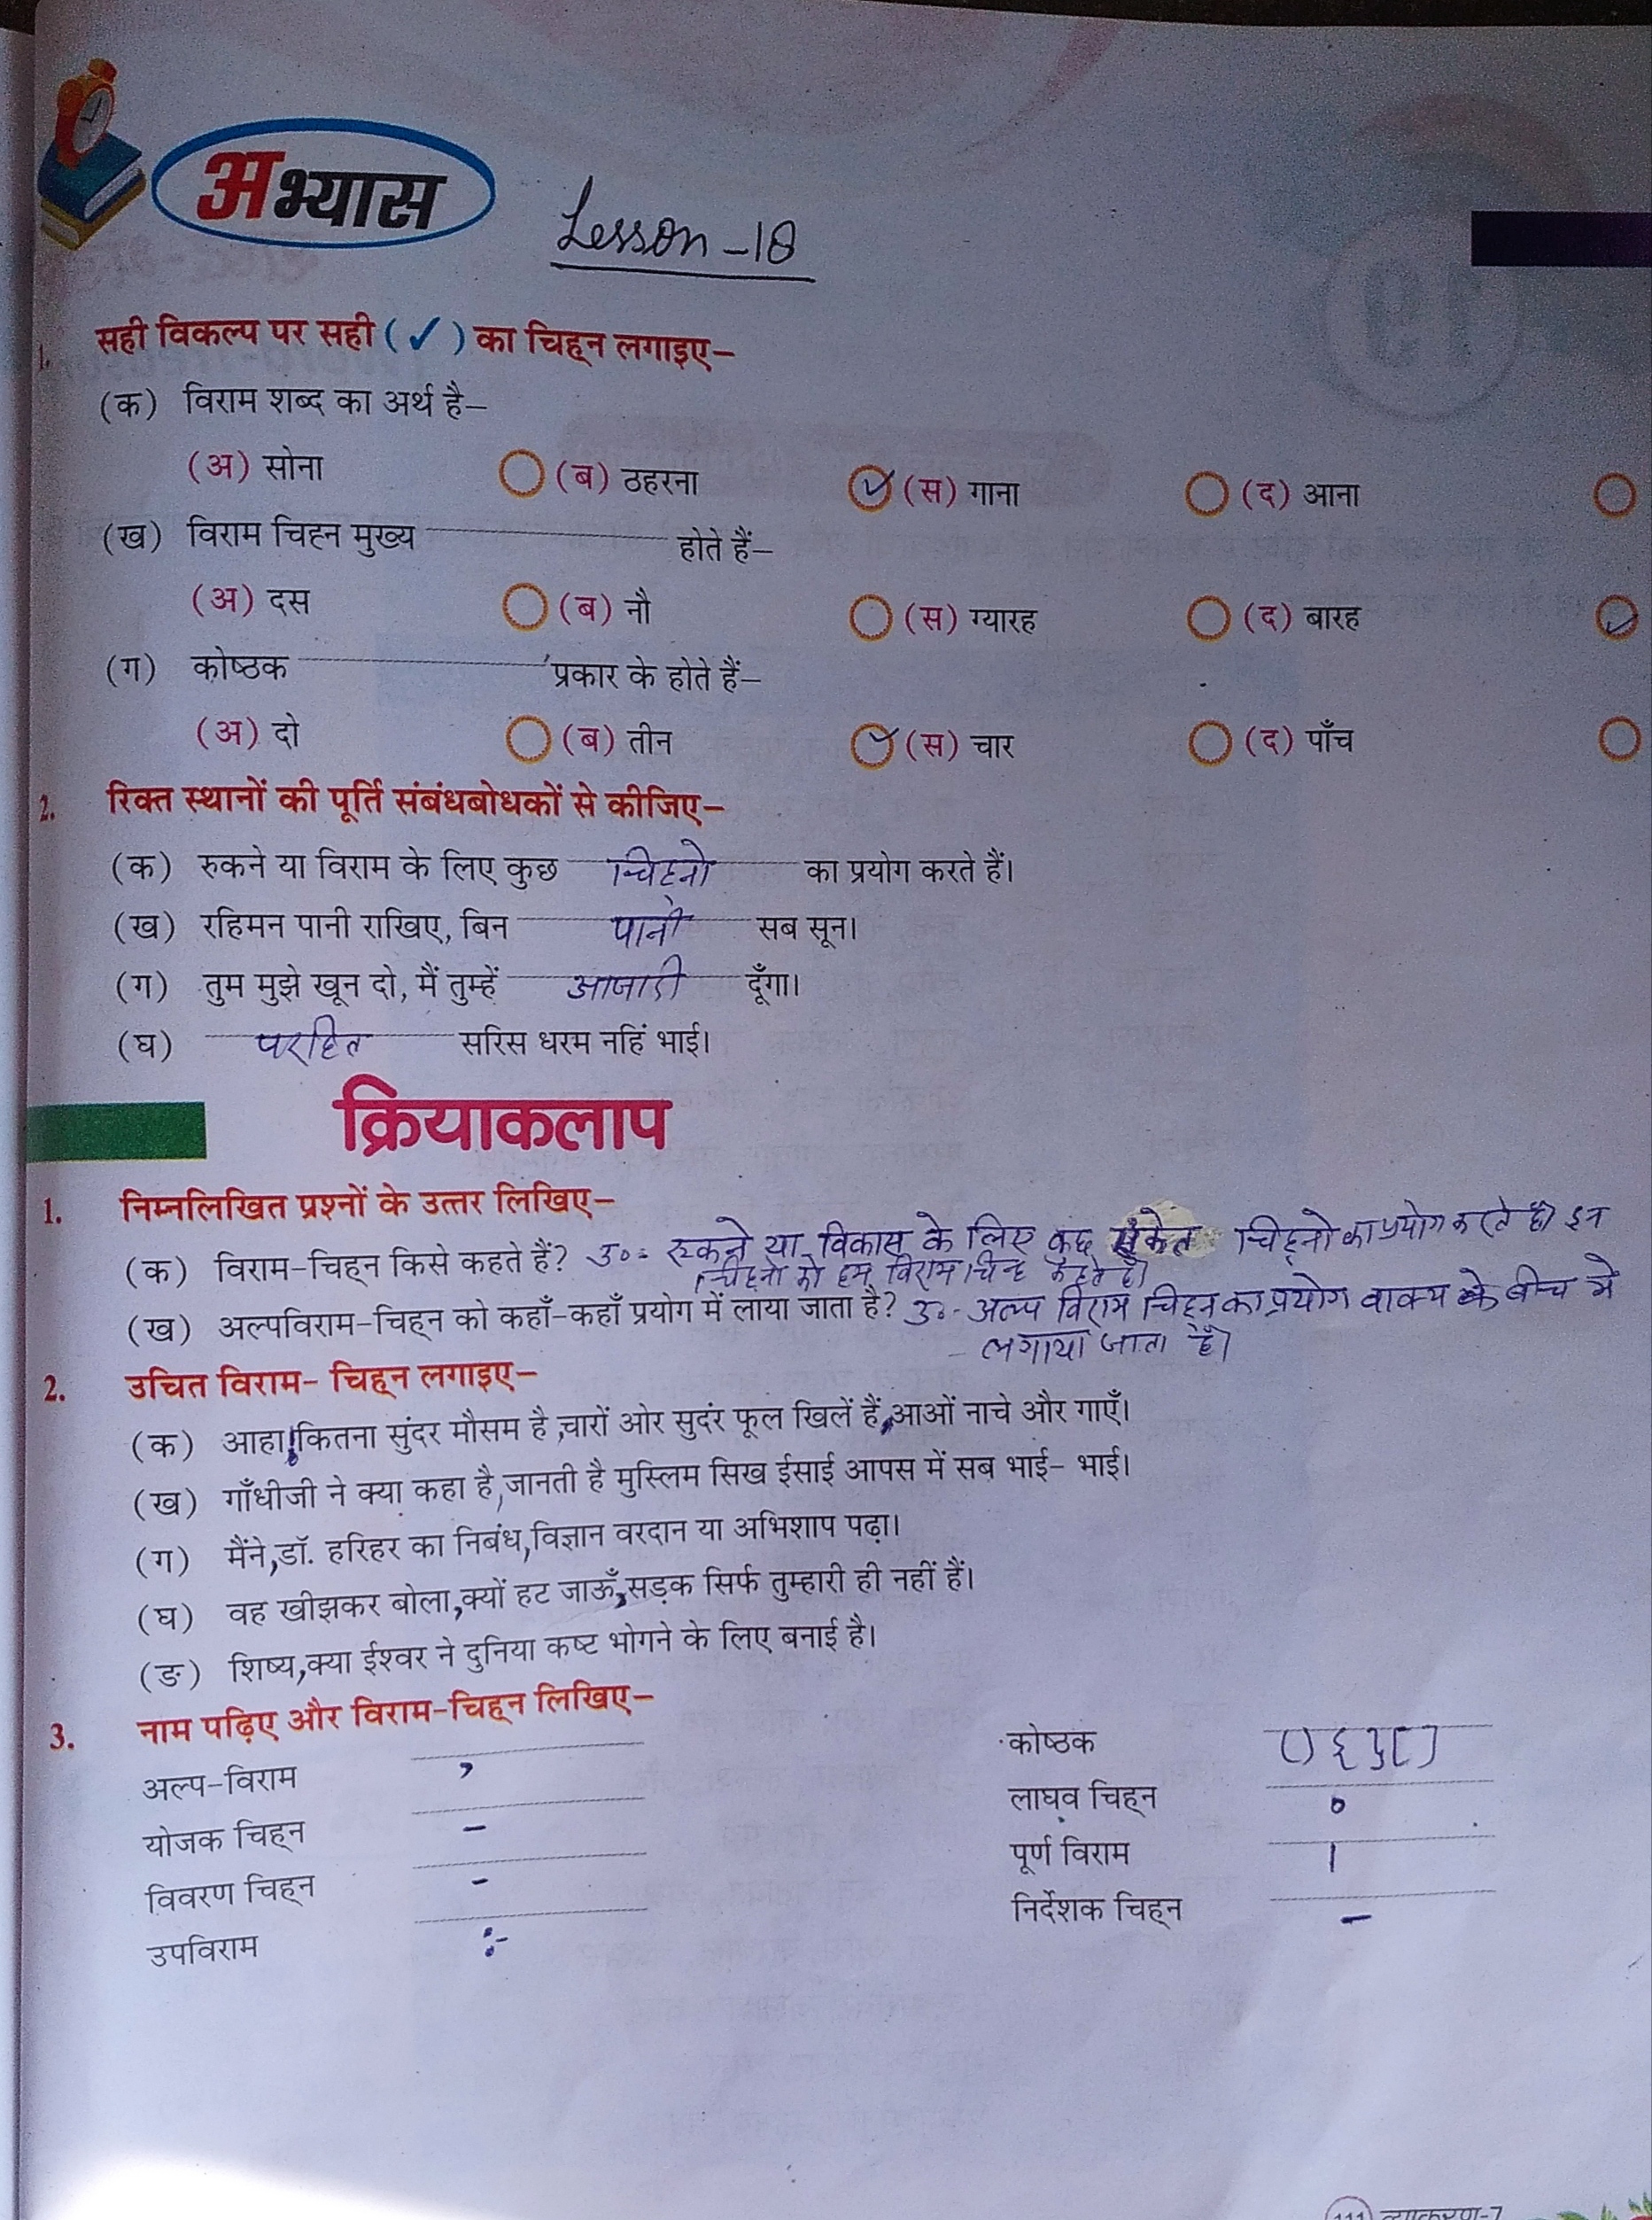 अभ्यास
Lesson-18
1. सही विकल्प पर सही ( ✓ ) का चिह्न लगाइए–
(क) विराम शब्द का अर्थ है–
(अ) सोना (ब) ठहरना ✓ (स) गाना (द) आना
(ख) विराम चिह्न मुख्य होते हैं–
(अ) दस (ब) नौ (स) ग्यारह (द) बारह ✓
(ग) कोष्ठक प्रकार के होते हैं–
(अ) दो (ब) तीन ✓ (स) चार (द) पाँच
2. रिक्त स्थानों की पूर्ति संबंधबोधकों से कीजिए–
(क) रुकने या विराम के लिए कुछ चिह्नो का प्रयोग करते हैं।
(ख) रहिमन पानी राखिए, बिन पानी सब सून।
(ग) तुम मुझे खून दो, मैं तुम्हें आजादी दूँगा।
(घ) परहित सरिस धरम नहिं भाई।
क्रियाकलाप
1. निम्नलिखित प्रश्नों के उत्तर लिखिए–
(क) विराम-चिह्न किसे कहते हैं? उ०= रुकने या विकास के लिए कुछ संकेत चिह्नो का प्रयोग करते है। इन
चिह्नो को हम विराम चिन्ह कहते है।
(ख) अल्पविराम-चिह्न को कहाँ-कहाँ प्रयोग में लाया जाता है? उ०- अल्प विराम चिह्न का प्रयोग वाक्य के बीच मे
- लगाया जाता है।
2. उचित विराम- चिह्न लगाइए–
(क) आहा! कितना सुंदर मौसम है ,चारों ओर सुदंर फूल खिलें हैं,आओं नाचे और गाएँ।
(ख) गाँधीजी ने क्या कहा है,जानती है मुस्लिम सिख ईसाई आपस में सब भाई- भाई।
(ग) मैंने,डॉ. हरिहर का निबंध,विज्ञान वरदान या अभिशाप पढ़ा।
(घ) वह खीझकर बोला,क्यों हट जाऊँ,सड़क सिर्फ तुम्हारी ही नहीं हैं।
(ङ) शिष्य,क्या ईश्वर ने दुनिया कष्ट भोगने के लिए बनाई है।
3. नाम पढ़िए और विराम-चिह्न लिखिए–
अल्प-विराम , कोष्ठक () { } [ ]
योजक चिह्न - लाघव चिह्न ०
विवरण चिह्न - पूर्ण विराम ।
उपविराम :- निर्देशक चिह्न –
111 व्याकरण-7